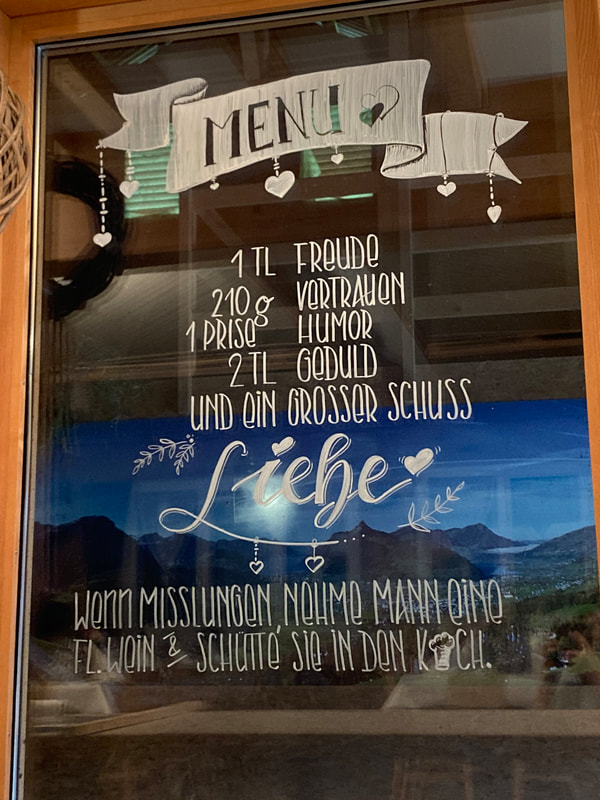 MENU
1 TL FREUDE
210 g VERTRAUEN
1 PRISE HUMOR
2 TL GEDULD
UND EIN GROSSER SCHUSS
Liebe
WENN MISSLUNGEN, NEHME MANN EINE
FL. WEIN & SCHÜTTE SIE IN DEN KOCH.